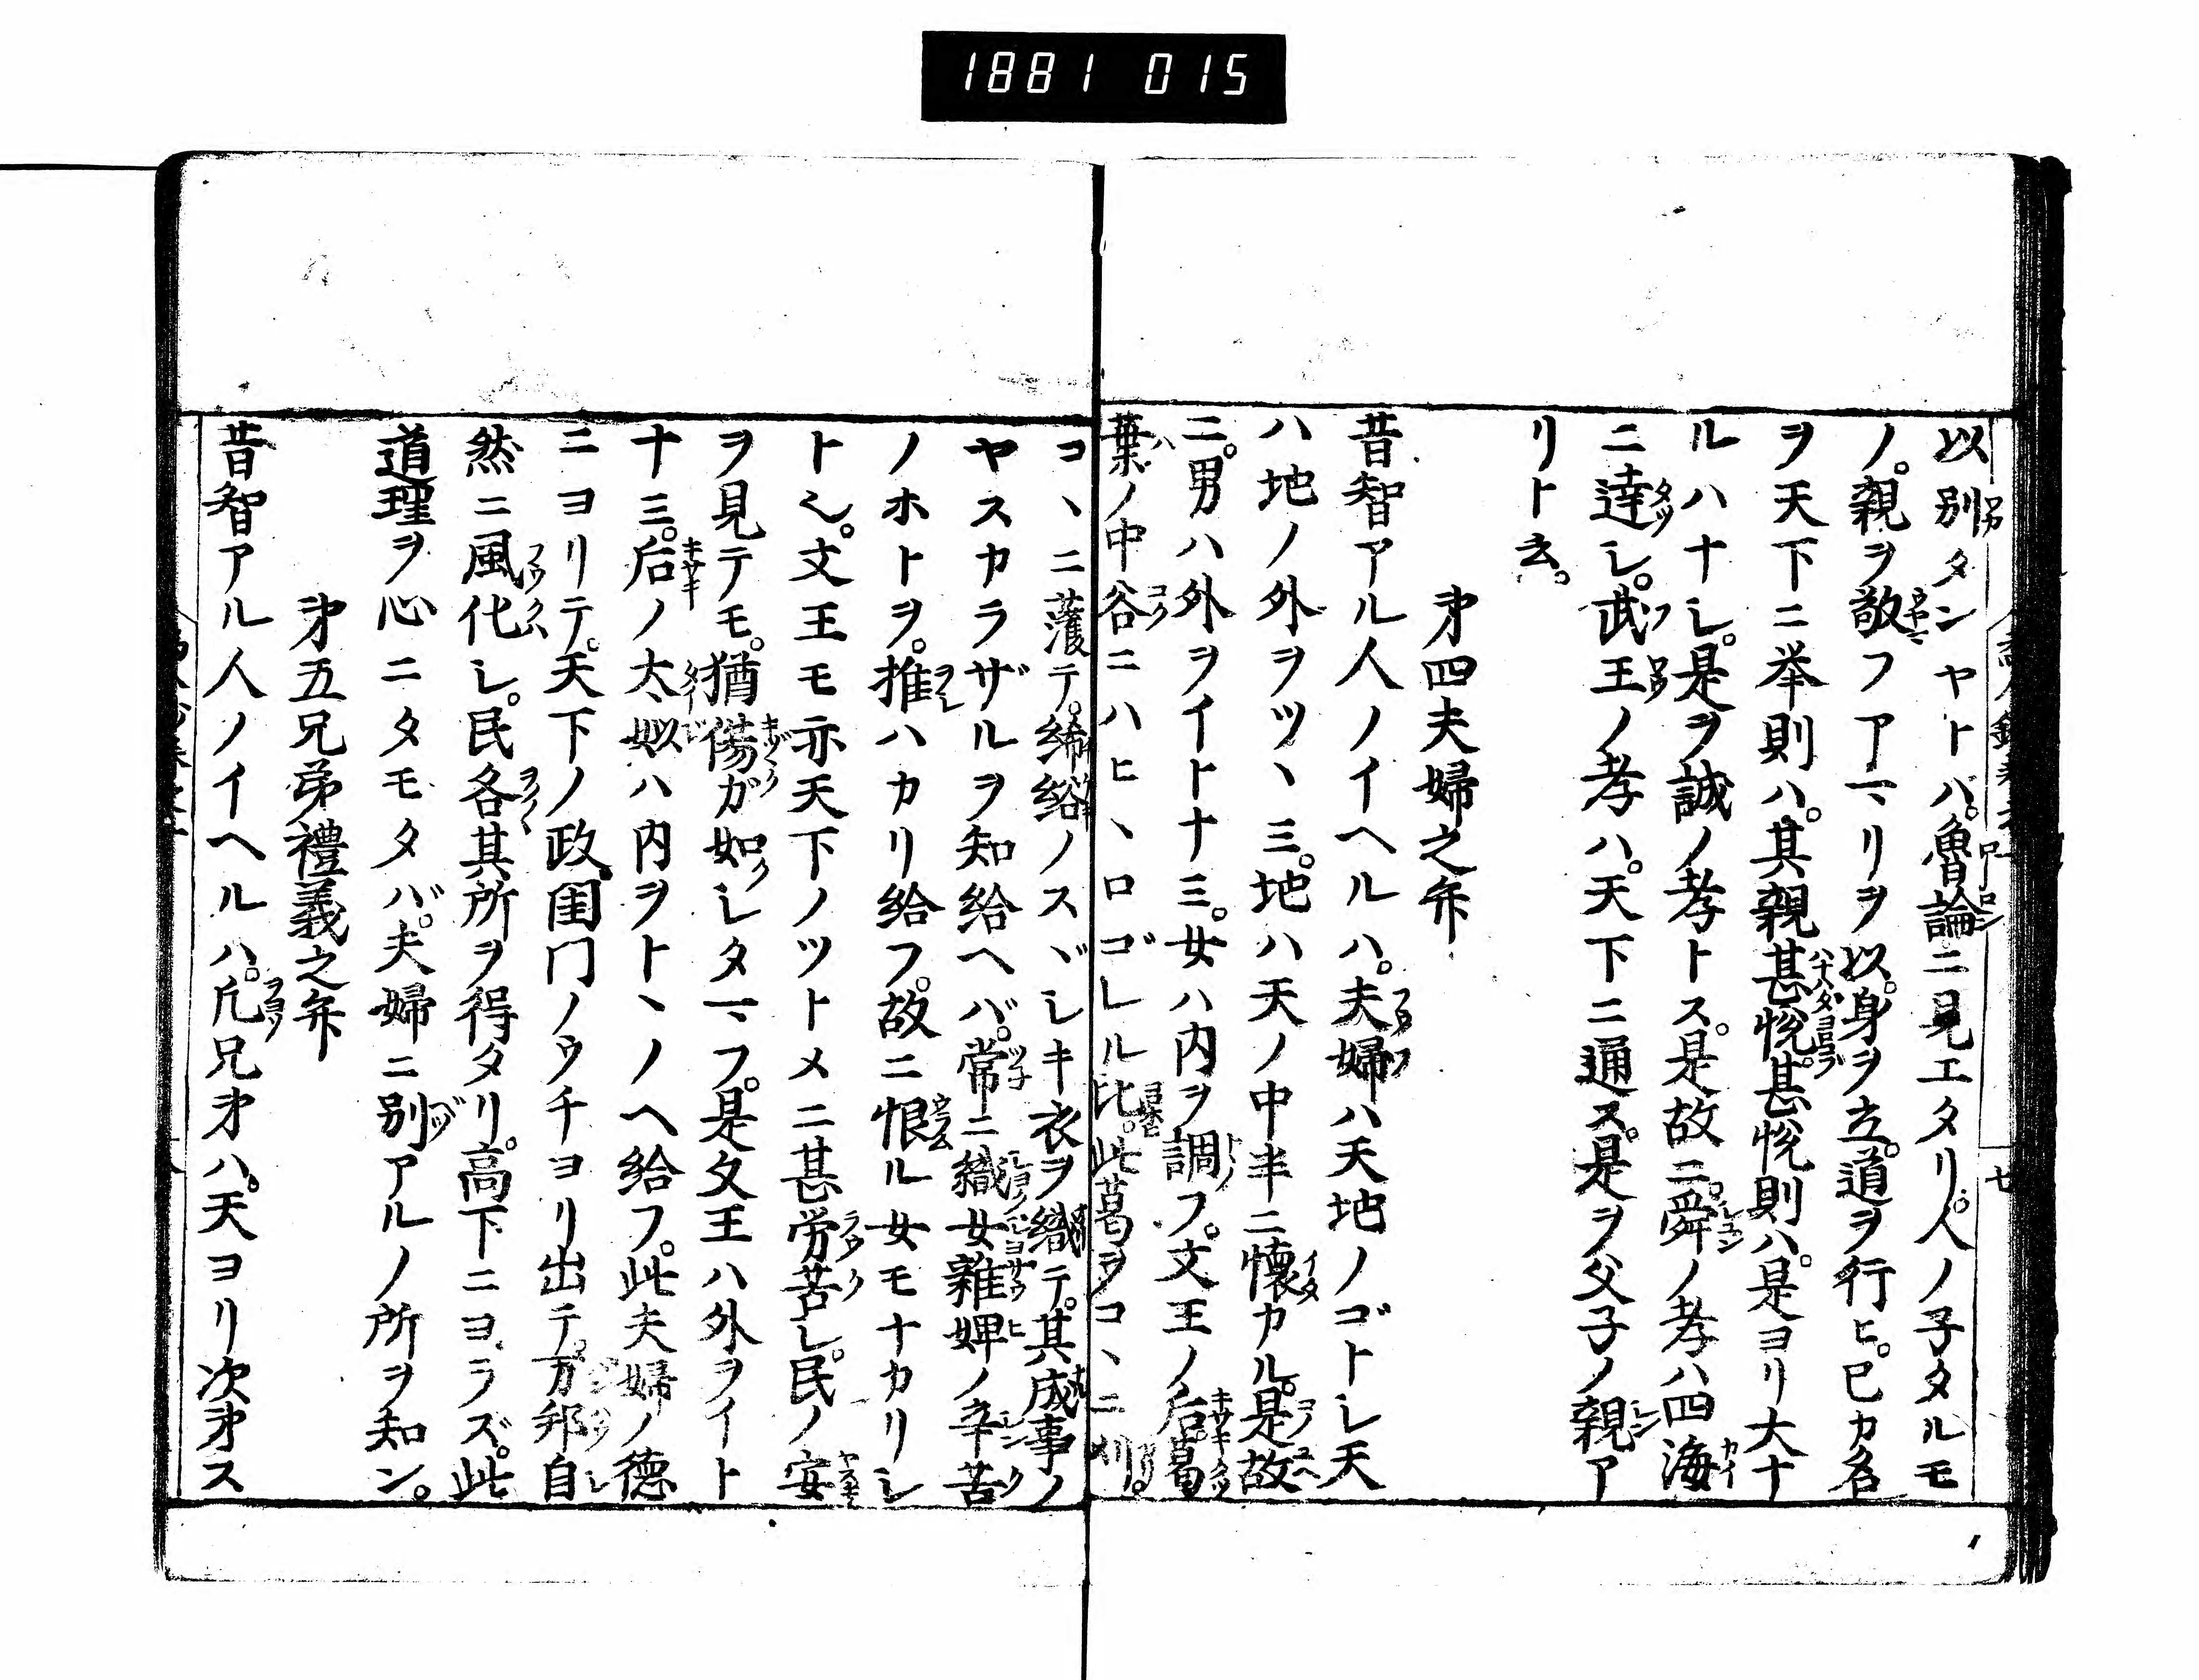 1881 015
以別タンヤトバ。魯論ニ見エタリ。人ノ子タルモ
ノ。親ヲ敬フアヤマリヲ以。身ヲ立。道ヲ行ヒ。已カ名
ヲ天下ニ挙則ハ。其親甚悅。甚悅則ハ。是ヨリ大ナ
ルハナシ。是ヲ誠ノ孝トス。是故ニ。舜ノ孝ハ四海
ニ達シ。武王ノ孝ハ。天下ニ通ス。是ヲ父子ノ親ア
リト云。
㐧四夫婦之弁
昔智アル人ノイヘルハ。夫婦ハ天地ノゴトシ天
ハ地ノ外ヲツヽミ。地ハ天ノ中半ニ懐カル。是故
ニ。男ハ外ヲイトナミ。女ハ内ヲ調フ。文王ノ后葛
葉ノ中谷ニハヒヽロゴレル比。此葛ヲコヽニ刈。
コヽニ濩テ。絺綌ノスヾシキ衣ヲ織テ。其成事ノ
ヤスカラザルヲ知給ヘバ。常ニ織女雜婢ノ辛苦
ノホトヲ。推ハカリ給フ。故ニ恨ル女モナカリシ
ト也。文王モ亦天下ノツトメニ甚労苦シ。民ノ安
ヲ見テモ。猶傷ガ如シタマフ。是文王ハ外ヲイト
ナミ。后ノ太姒ハ内ヲトヽノヘ給フ。此夫婦ノ德
ニヨリテ。天下ノ政閨門ノウチヨリ出テ。万邦自
然ニ風化シ。民各其所ヲ得タリ。高下ニヨラズ。此
道理ヲ心ニタモタバ。夫婦ニ別アルノ所ヲ知ン。
㐧五兄弟禮義之弁
昔智アル人ノイヘルハ。凡兄㐧ハ。天ヨリ次㐧ス